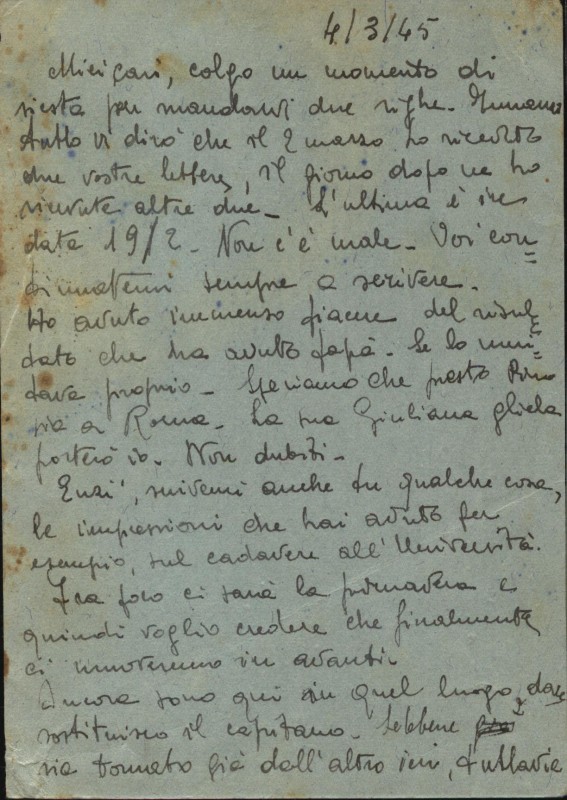 4/3/45
Miei cari, colgo un momento di
siesta per mandarvi due righe. Innanzi
tutto vi dirò che il 2 marzo ho ricevuto
due vostre lettere, il giorno dopo ne ho
ricevute altre due. L'ultima è in
data 19/2. Non c'è male. Voi con=
tinuatemi sempre a scrivere.
Ho avuto immenso piacere del risul=
tato che ha avuto papà. Se lo meri=
tava proprio. Speriamo che presto Rino
sia a Roma. La sua Giuliana gliela
porterò io. Non dubiti.
Enzi', scrivemi anche tu qualche cosa,
le impressioni che hai avuto per
esempio, sul cadavere all'Università.
Fra poco ci sarà la primavera e
quindi voglio credere che finalmente
ci muoveremo in avanti.
Ancora sono qui in quel luogo, dove
sostituisco il capitano. Sebbene
sia tornato già dall'altro ieri, tuttavia